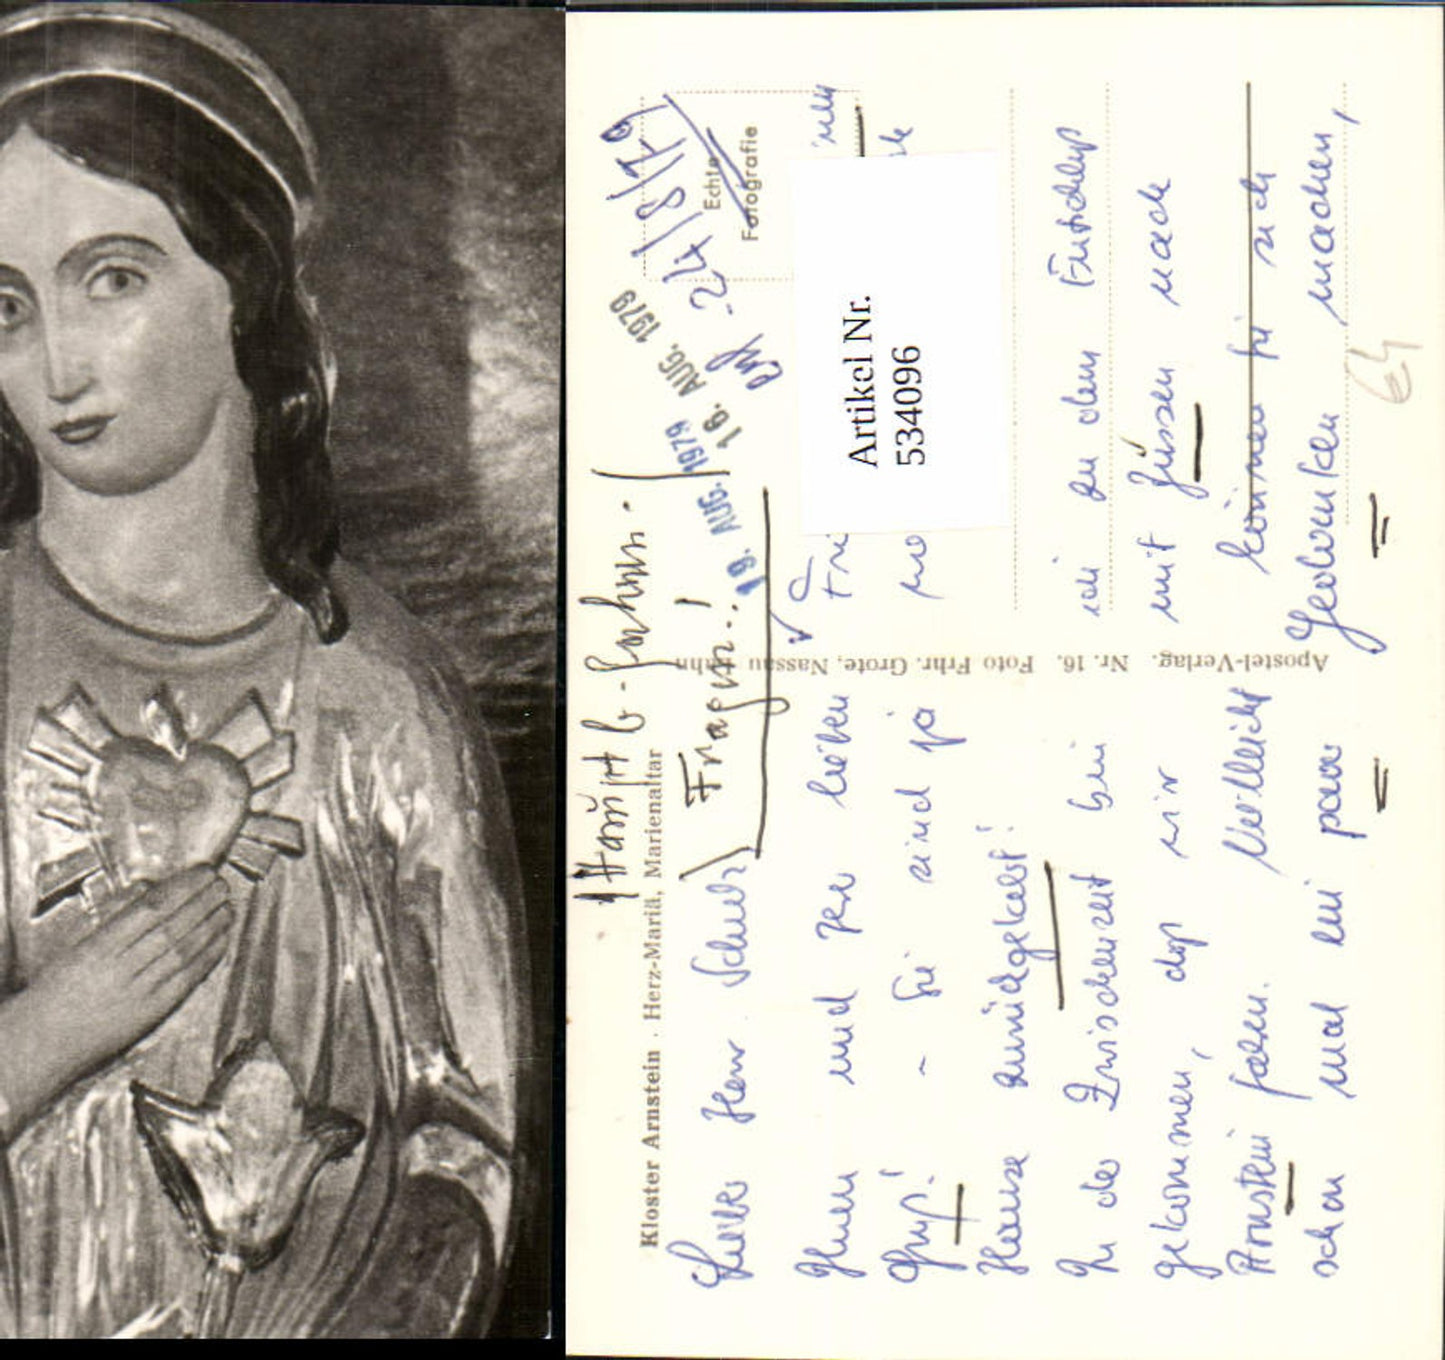 Kloster Arnstein . Herz-Mariä, Marienaltar
Fragen!
Lieber Herr
Ihnen und
Gruß! - Sie sind ja
Hause zurückgekehrt!
In der Zwischenzeit bin
gekommen, daß wir
Arnstein fahren. Vielleicht
schon mal ein paar
Apostel-Verlag. Nr. 16. Foto Frhr. Grote, Nassau Lahn
19. AUG. 1979
16. AUG. 1979
24/8/79
Echte
Fotografie
Artikel Nr.
534096
ich zu dem Entschluß
mit Füssen nach
können Sie sich
Gedanken machen,